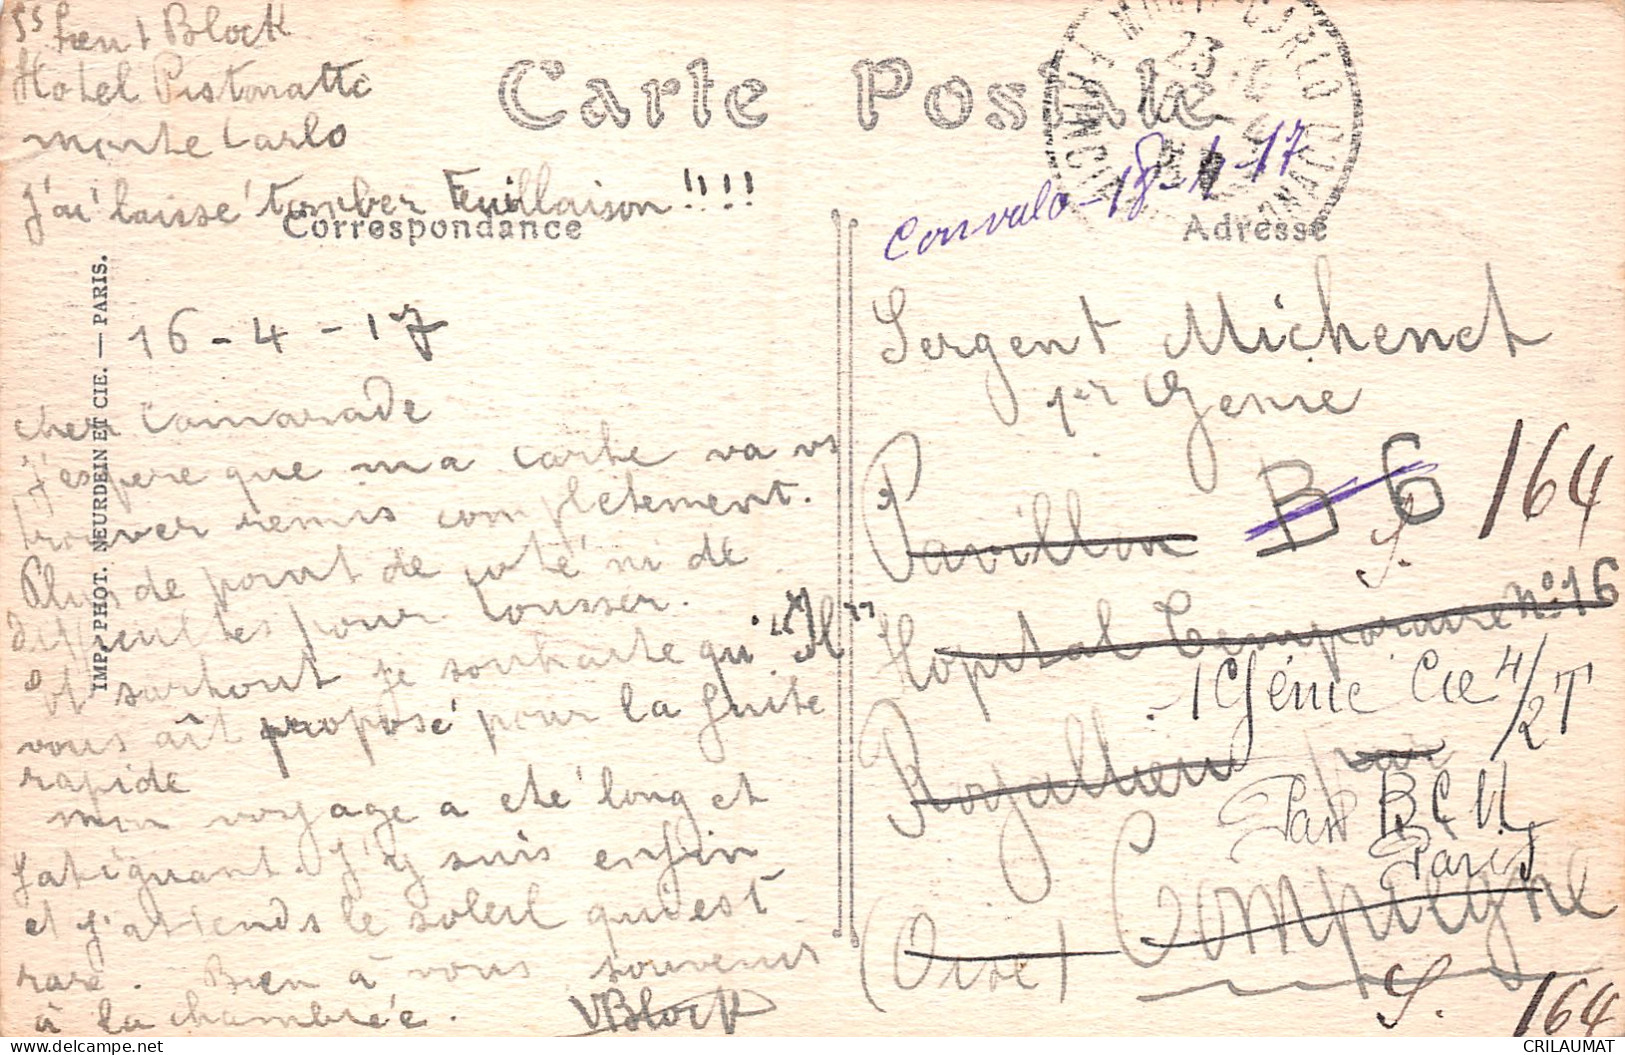 Carte Postale
Correspondance
Adresse
IMP. PHOT. NEURDEIN ET CIE. — PARIS.
Block
Hotel Pistonatto
monte Carlo
j'ai laissé tomber Feuillaison!!!!
16-4-17
cher camarade
j'espere que ma carte va vs
trouver remis completement.
Plus de point de coté ni de
difficultés pour tousser.
et surtout je souhaite qu' "Il"
vous ait proposé pour la suite
rapide
mon voyage a eté long et
fatiguant. J'y suis enfin
et j'attends le soleil qui est
rare. Bien à vous souvenir
à la chambrée. VBlock
MONTE-CARLO
23
Convalo-18-4-17
Sergent Michenet
1er Genie
Pavillon B 6 164
S.
Hopital Temporaire no 16
1 Génie Cie 4/2T
Royallieu par
Par BCM
Paris
Compiègne
(Oise)
S. 164
CRILAUMAT